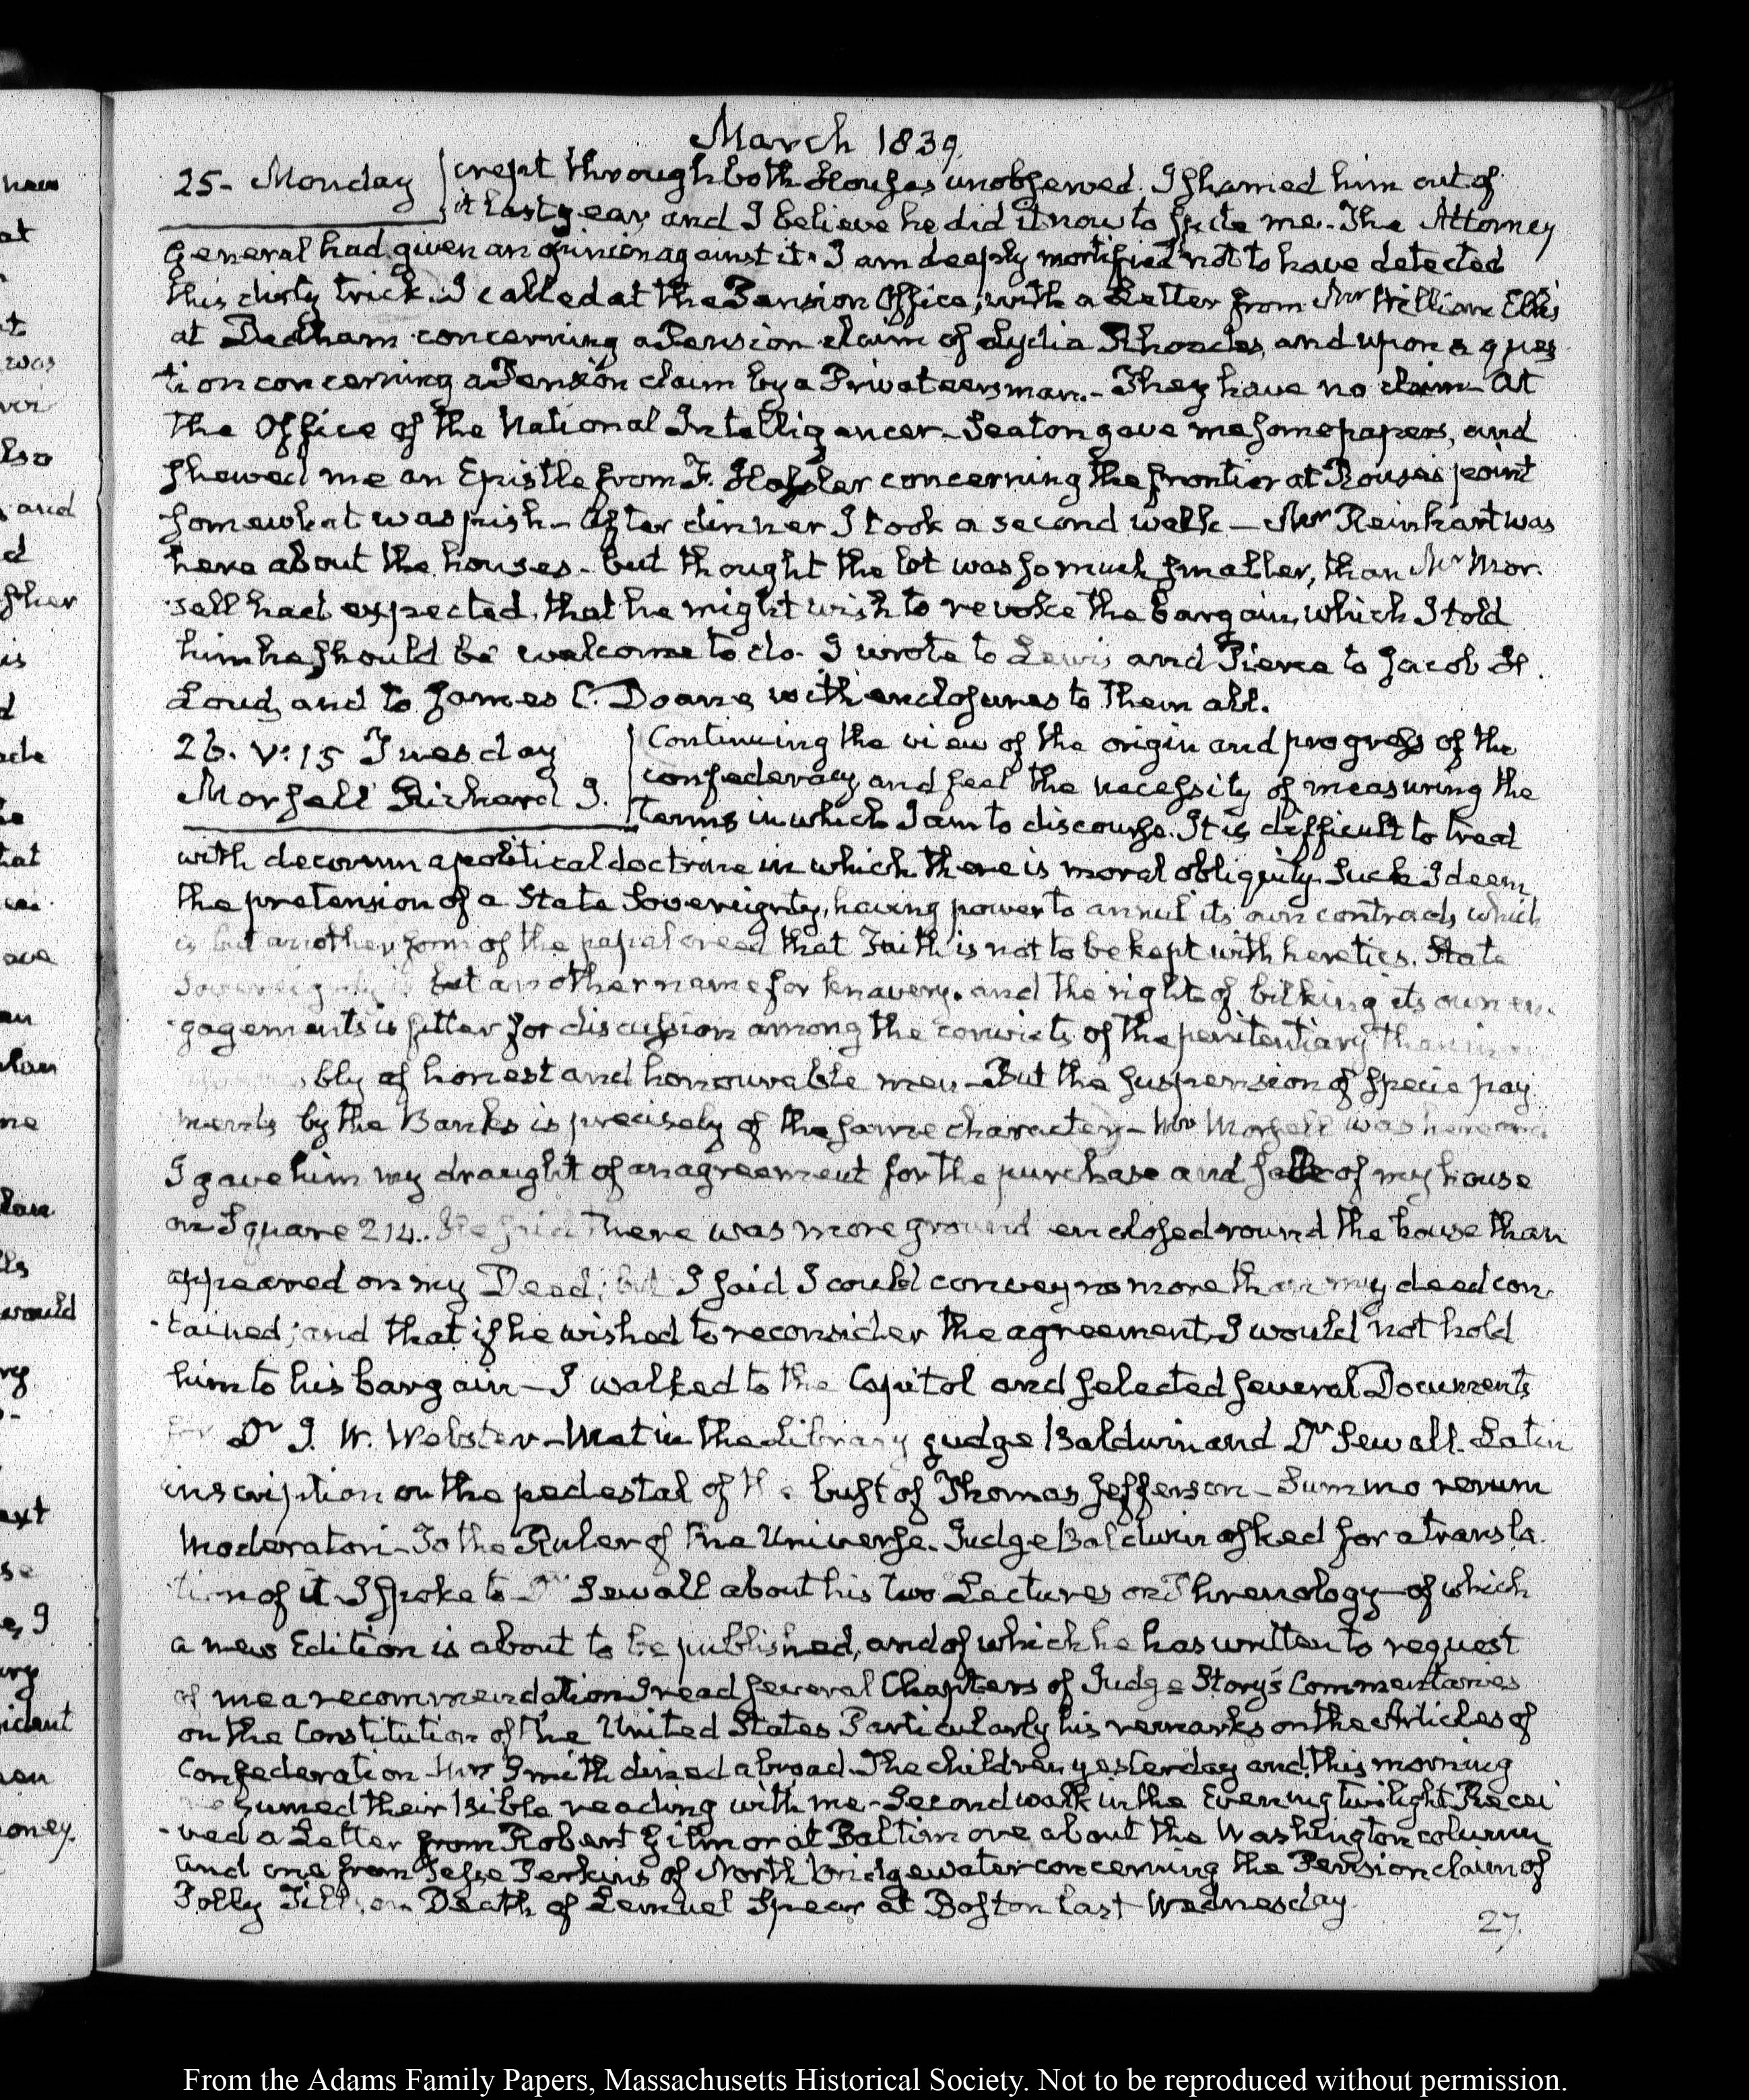 March 1839.
25- Monday
crept through both Houses unobserved. I shamed him out of
it last year, and I believe he did it now to spite me. The Attorney
General had given an opinion against it. I am deeply mortified not to have detected
this dirty trick. I called at the Pension Office, with a Letter from Mr William Ellis
at Dedham concerning a Pension claim of Lydia Rhoades, and upon a ques
tion concerning a Pension claim by a Privateersman.- They have no claim- At
the Office of the National Intelligencer- Seaton gave me some papers, and
shewed me an Epistle from F. Hassler concerning the frontier at Rouses point
somewhat waspish- After dinner I took a second walk- Mr Reinhart was
here about the houses- but thought the lot was so much smaller, than Mr Mor-
sell had expected, that he might wish to revoke the bargain, which I told
him he should be welcome to do. I wrote to Lewis and Pierce to Jacob H.
Loud, and to James C. Doane, with enclosures to them all.
26. V:15 Tuesday
Morsell Richard J.
Continuing the view of the origin and progress of the
confederacy, and feel the necessity of measuring the
terms in which I am to discourse. It is difficult to treat
with decorum a political doctrine in which there is moral obliquity. Such I deem
the pretension of a State Sovereignty, having power to annul its own contracts which
is but another form of the papal creed that Faith is not to be kept with heretics. State
Sovereignty is but another name for knavery, and the right of bilking its own en-
gagements is fitter for discussion among the convicts of the penitentiary than in
bly of honest and honourable men- But the suspension of specie pay
ments by the Banks is precisely of the same character- Mr Morsell was here and
I gave him my draught of an agreement for the purchase and sale of my house
on Square 214. He said there was more ground enclosed round the house than
appeared on my Deed; but I said I could convey no more than my deed con-
tained; and that if he wished to reconsider the agreement, I would not hold
him to his bargain- I walked to the Capitol and selected several Documents
for Dr J. W. Webster- Met in the Library Judge Baldwin and Dr Sewall. Latin
inscription on the pedestal of the bust of Thomas Jefferson- Summo rerum
Moderatori- To the Ruler of the Universe. Judge Baldwin asked for a transla-
tion of it. I spoke to Dr Sewall about his two Lectures on Phrenology- of which
a new Edition is about to be published, and of which he has written to request
of me a recommendation. I read several Chapters of Judge Story's Commentaries
on the Constitution of the United States Particularly his remarks on the Articles of
Confederation- Mrs Smith dined abroad. The children yesterday and this morning
resumed their Bible reading with me- Second walk in the Evening twilight. Recei
-ved a Letter from Robert Gilmor at Baltimore about the Washington column
and one from Jesse Perkins of North Bridgewater concerning the Pension claim of
Polly Tillson. Death of Lemuel Spear at Boston last Wednesday.
27.
From the Adams Family Papers, Massachusetts Historical Society. Not to be reproduced without permission.